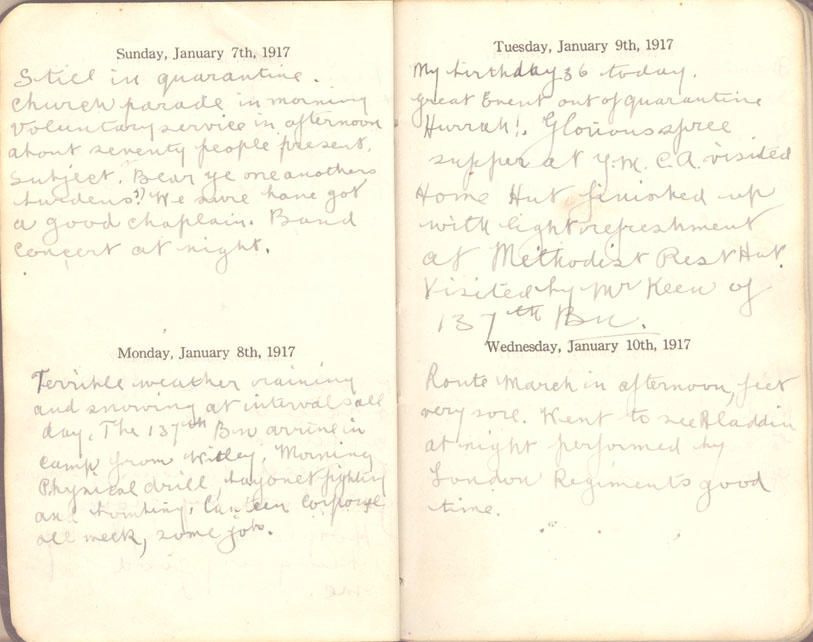 Sunday, January 7th, 1917
Still in quarantine.
Church parade in morning
Voluntary service in afternoon
about seventy people present.
Subject. Bear ye one anothers
burdens". We sure have got
a good chaplain. Band
Concert at night.
Monday, January 8th, 1917
Terrible weather raining
and snowing at intervals all
day. The 137th Bn arrive in
camp from Witley. Morning
Physical drill, bayonet fighting
and bombing. Canteen Corporal
all week, some job.
Tuesday, January 9th, 1917
My birthday 36 today.
great Event out of quarantine
Hurrah!. Glorious spree
supper at Y.M.C.A. visited
Home Hut finished up
with light refreshment
at Methodist Rest Hut.
Visited by Mr Keen of
137th Bn.
Wednesday, January 10th, 1917
Route March in afternoon, feet
very sore. Went to see Aladdin
at night performed by
London Regiments good
time.